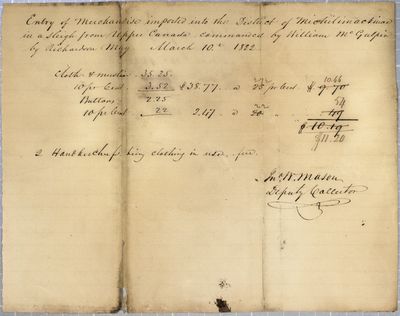 Entry of Merchandise imported into the District of Michilimackinac
in a sleigh from Upper Canada commanded by William McGulpin
by Richardson May March 10th 1822
Cloth & muslin 35.25.
10 pr Cent 3.52 $38.77. a 25 27½ pr Cent. $ 9.70 10.66
Buttons 2.25
10 pr Cent 22 2.47 a 20 22 49 54
$ 10.19
$11.20
2 Handkerchiefs being clothing in use free.
Jno. W. Mason
Deputy Collector